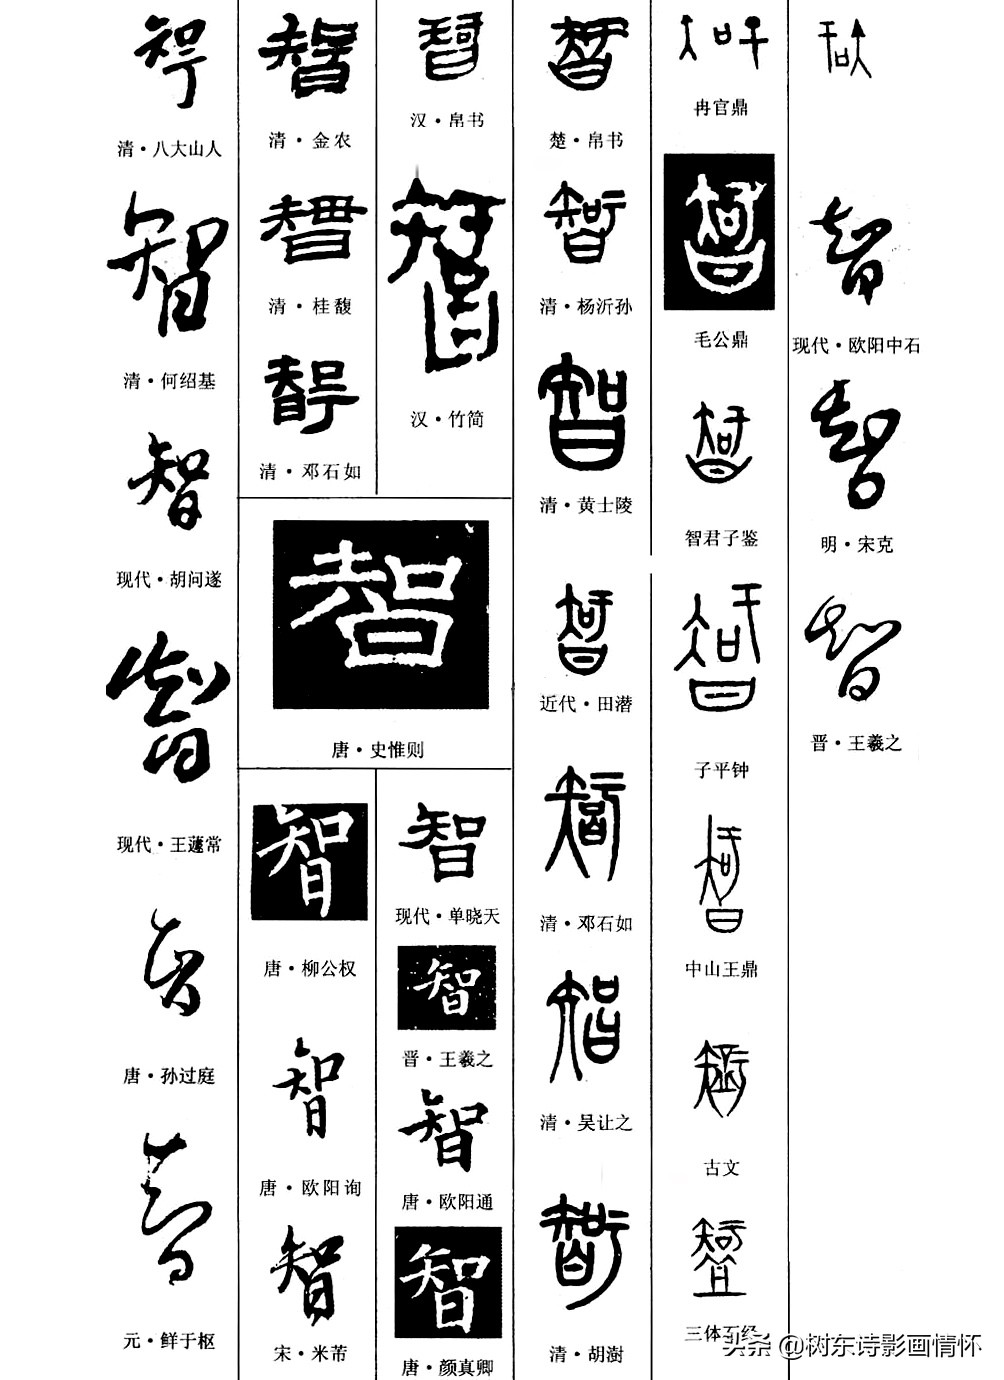 智
清·八大山人
智
清·何绍基
智
现代·胡问遂
智
现代·王蘧常
智
唐·孙过庭
智
元·鲜于枢
智
清·金农
智
清·桂馥
智
清·邓石如
智
汉·帛书
智
汉·竹简
智
唐·史惟则
智
唐·柳公权
智
唐·欧阳询
智
宋·米芾
智
现代·单晓天
智
晋·王羲之
智
唐·欧阳通
智
唐·颜真卿
智
楚·帛书
智
清·杨沂孙
智
清·黄士陵
智
近代·田潜
智
清·邓石如
智
清·吴让之
智
清·胡澍
智
冉官鼎
智
毛公鼎
智
智君子鉴
智
子平钟
智
中山王鼎
智
古文
智
三体石经
智
智
现代·欧阳中石
智
明·宋克
智
晋·王羲之
头条 @树东诗影画情怀